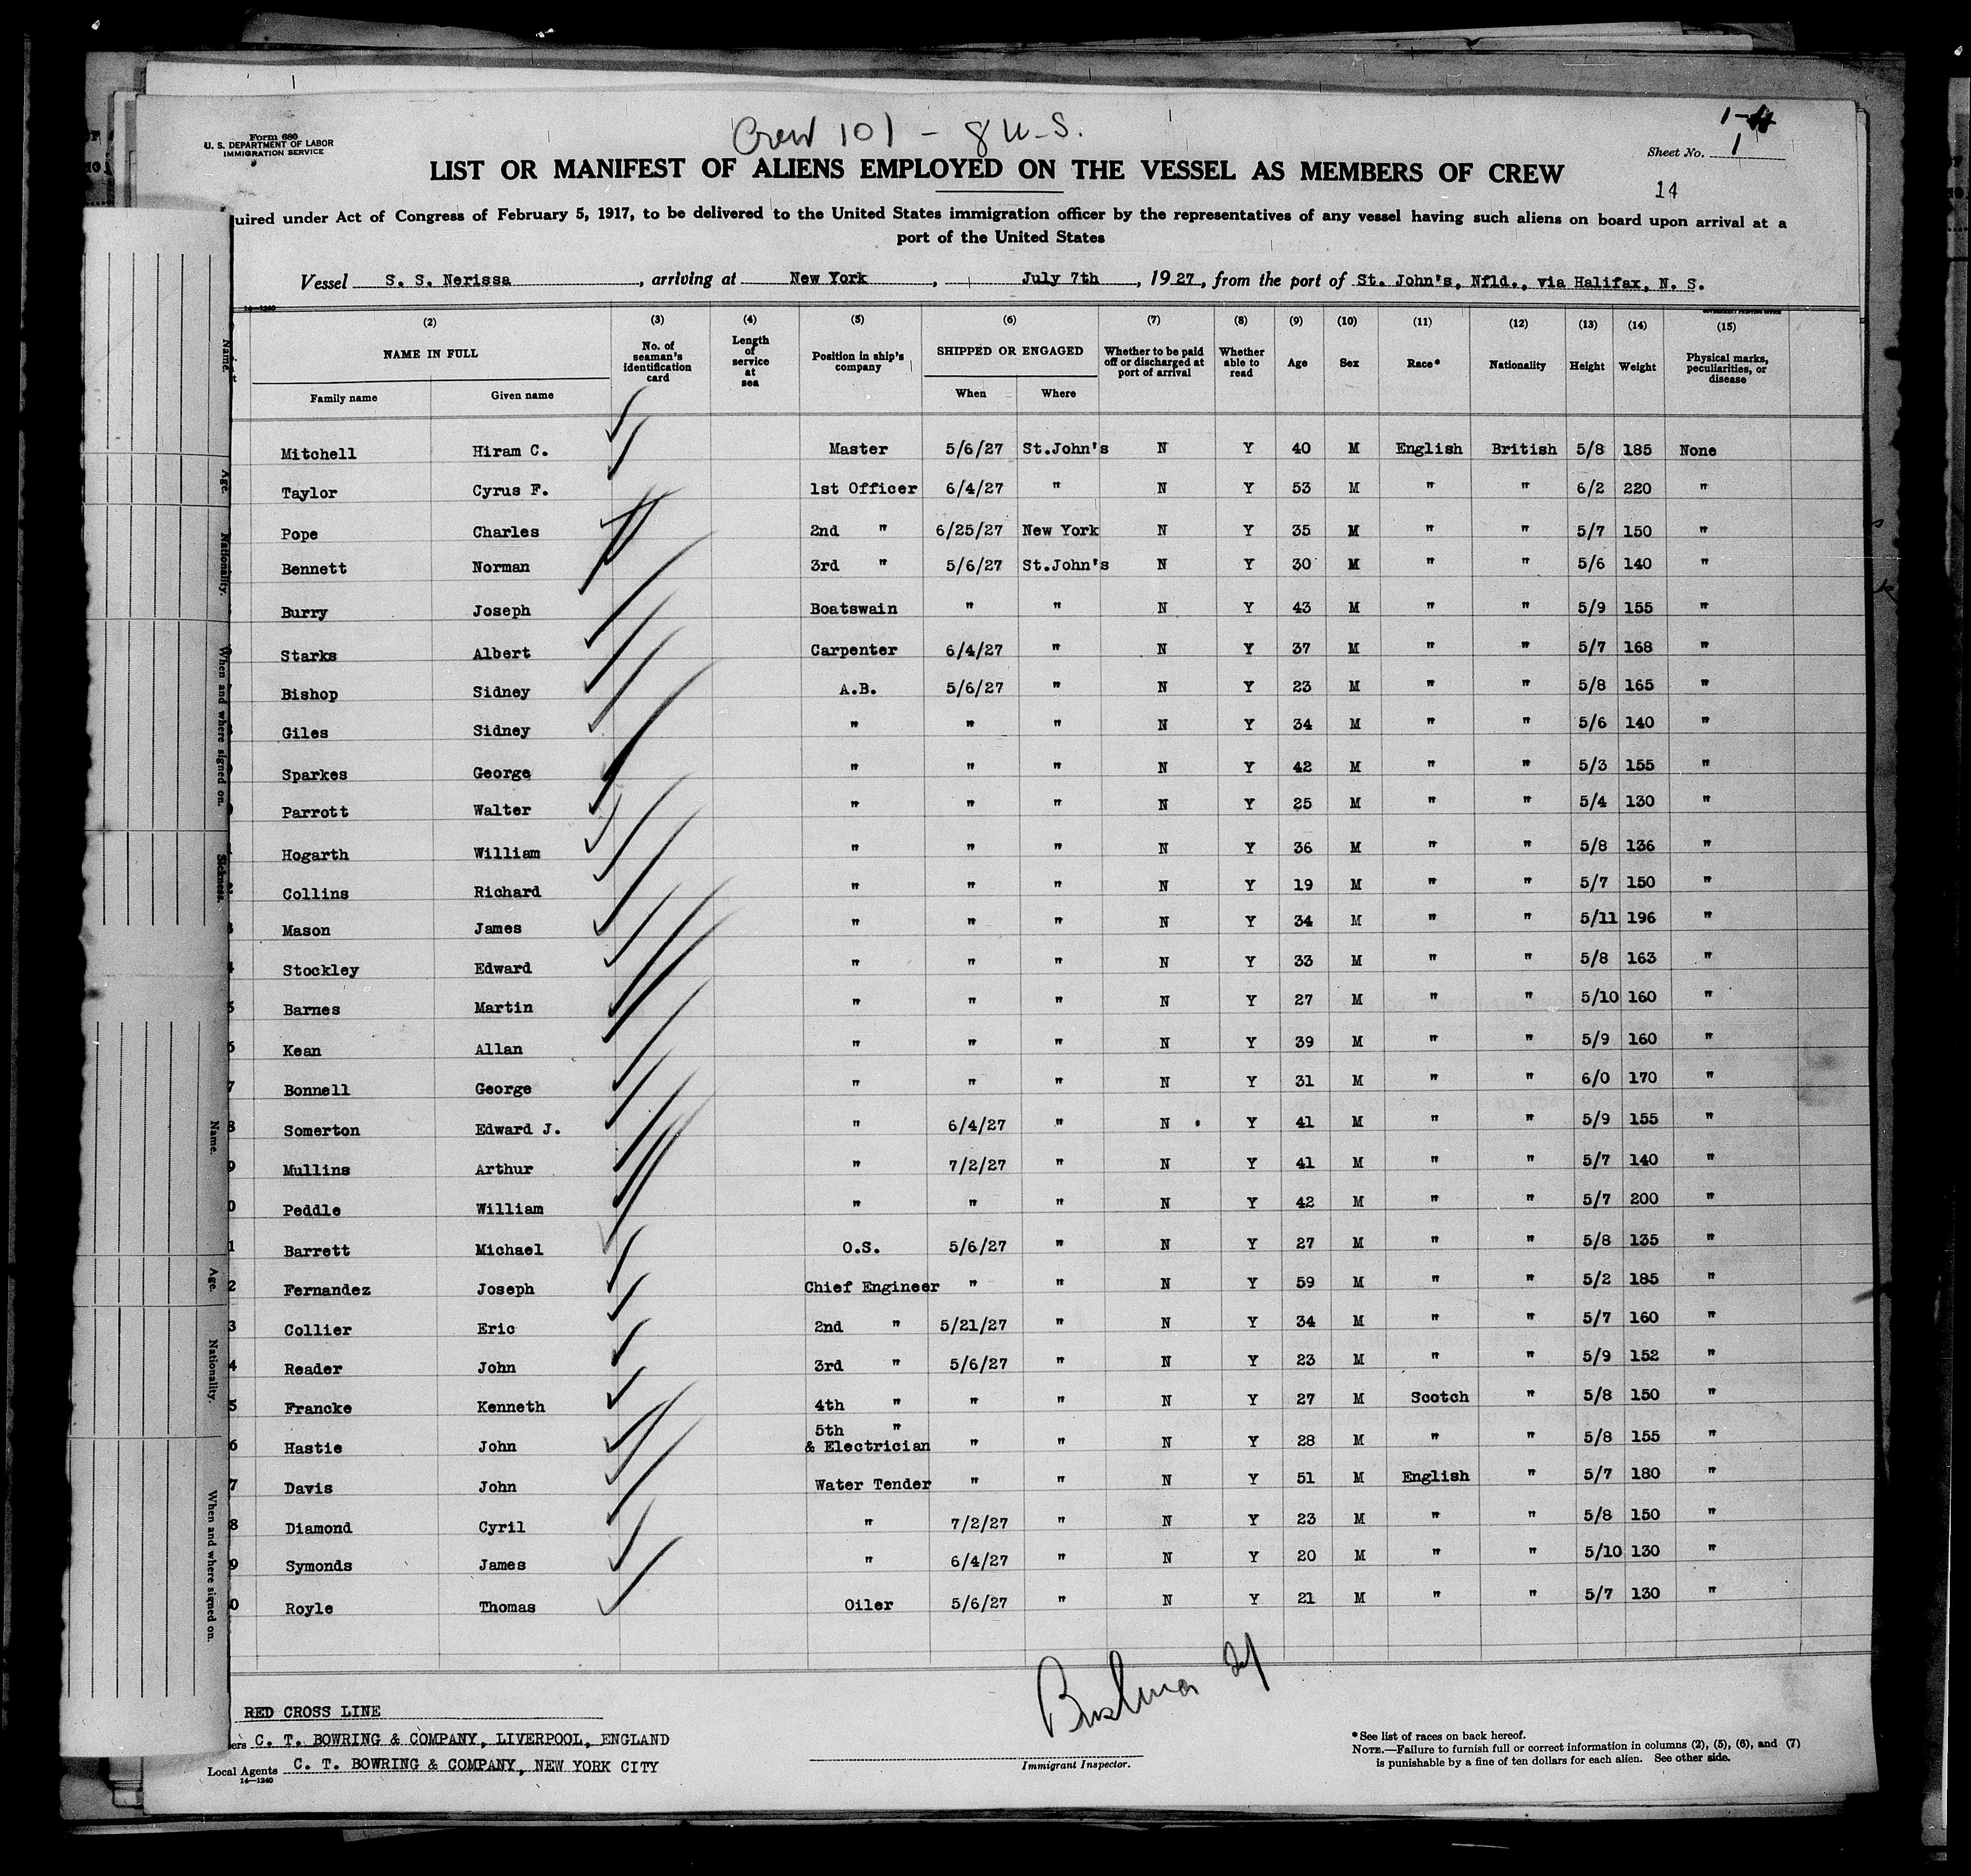 Form 680
U. S. DEPARTMENT OF LABOR
IMMIGRATION SERVICE
Crew 101 - 8 U.S.
1-
Sheet No. 1
14
LIST OR MANIFEST OF ALIENS EMPLOYED ON THE VESSEL AS MEMBERS OF CREW
uired under Act of Congress of February 5, 1917, to be delivered to the United States immigration officer by the representatives of any vessel having such aliens on board upon arrival at a
port of the United States
Vessel S. S. Nerissa, arriving at New York, July 7th, 1927, from the port of St. John's, Nfld., via Halifax, N. S.
14—1240 GOVERNMENT PRINTING OFFICE
(2) (3) (4) (5) (6) (7) (8) (9) (10) (11) (12) (13) (14) (15)
NAME IN FULL
Family name Given name
No. of seaman's identification card
Length of service at sea
Position in ship's company
SHIPPED OR ENGAGED
When Where
Whether to be paid off or discharged at port of arrival
Whether able to read
Age
Sex
Race*
Nationality
Height
Weight
Physical marks, peculiarities, or disease
Mitchell Hiram C. Master 5/6/27 St.John's N Y 40 M English British 5/8 185 None
Taylor Cyrus F. 1st Officer 6/4/27 " N Y 53 M " " 6/2 220 "
Pope Charles 2nd " 6/25/27 New York N Y 35 M " " 5/7 150 "
Bennett Norman 3rd " 5/6/27 St.John's N Y 30 M " " 5/6 140 "
Burry Joseph Boatswain " " N Y 43 M " " 5/9 155 "
Starks Albert Carpenter 6/4/27 " N Y 37 M " " 5/7 168 "
Bishop Sidney A.B. 5/6/27 " N Y 23 M " " 5/8 165 "
Giles Sidney " " " N Y 34 M " " 5/6 140 "
Sparkes George " " " N Y 42 M " " 5/3 155 "
Parrott Walter " " " N Y 25 M " " 5/4 130 "
Hogarth William " " " N Y 36 M " " 5/8 136 "
Collins Richard " " " N Y 19 M " " 5/7 150 "
Mason James " " " N Y 34 M " " 5/11 196 "
4 Stockley Edward " " " N Y 33 M " " 5/8 163 "
5 Barnes Martin " " " N Y 27 M " " 5/10 160 "
6 Kean Allan " " " N Y 39 M " " 5/9 160 "
7 Bonnell George " " " N Y 31 M " " 6/0 170 "
8 Somerton Edward J. " 6/4/27 " N Y 41 M " " 5/9 155 "
9 Mullins Arthur " 7/2/27 " N Y 41 M " " 5/7 140 "
0 Peddle William " " " N Y 42 M " " 5/7 200 "
1 Barrett Michael O.S. 5/6/27 " N Y 27 M " " 5/8 135 "
2 Fernandez Joseph Chief Engineer " " N Y 59 M " " 5/2 185 "
3 Collier Eric 2nd " 5/21/27 " N Y 34 M " " 5/7 160 "
4 Reader John 3rd " 5/6/27 " N Y 23 M " " 5/9 152 "
5 Francke Kenneth 4th " " " N Y 27 M Scotch " 5/8 150 "
5th "
6 Hastie John & Electrician " " N Y 28 M " " 5/8 155 "
7 Davis John Water Tender " " N Y 51 M English " 5/7 180 "
8 Diamond Cyril " 7/2/27 " N Y 23 M " " 5/8 150 "
9 Symonds James " 6/4/27 " N Y 20 M " " 5/10 130 "
0 Royle Thomas Oiler 5/6/27 " N Y 21 M " " 5/7 130 "
RED CROSS LINE
ers C. T. BOWRING & COMPANY, LIVERPOOL, ENGLAND
Local Agents C. T. BOWRING & COMPANY, NEW YORK CITY
14—1240
Immigrant Inspector.
*See list of races on back hereof.
NOTE.—Failure to furnish full or correct information in columns (2), (5), (6), and (7)
is punishable by a fine of ten dollars for each alien. See other side.
Name.
Age.
Nationality.
When and where signed on.
Sickness.
Name.
Age.
Nationality.
When and where signed on.